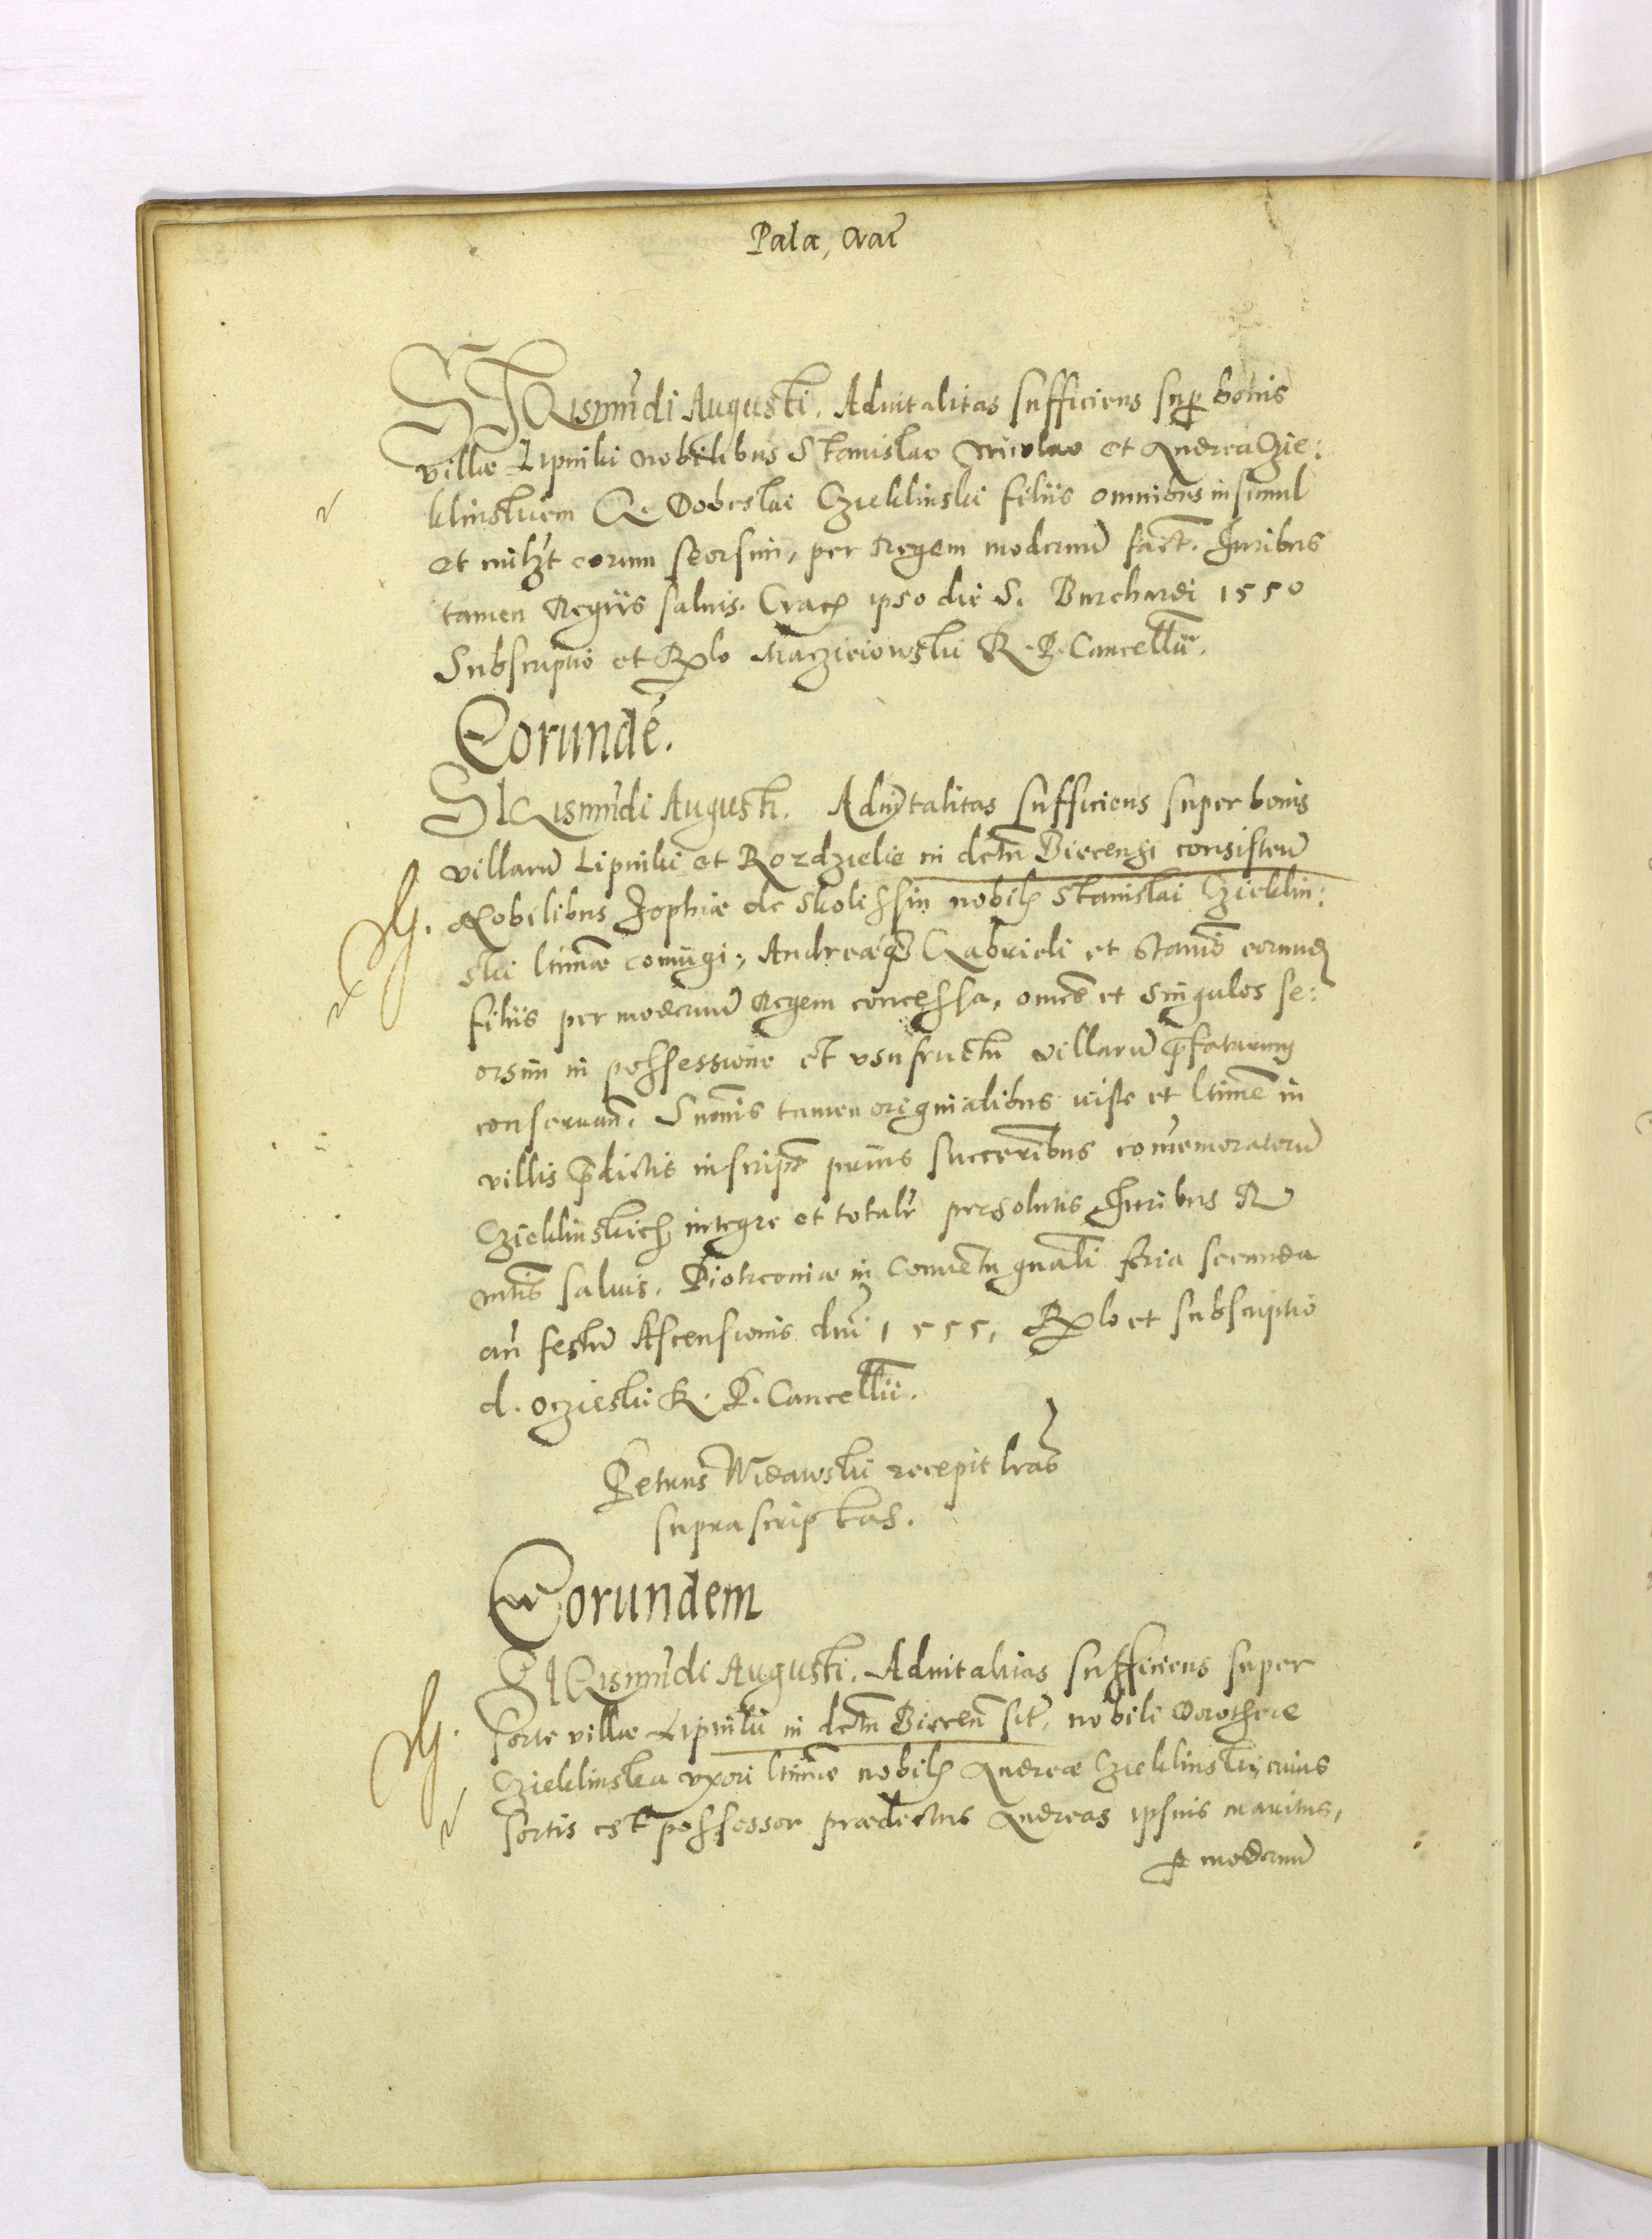 Pala, Crac̃
SIGismũdi Augusti. Aduitalitas sufficiens sup bonis
villæ Lipniki Nobilibus Stanislao Nicolao et Andreæ Czie:
klinskiem G. Dobeslai Czieklinski filiis omnibus insimul
et cuilzt eorum seorsim, per Regem modernũ fact. Iuribus
tamen Regiis saluis. Crac ipso die S. Burchardi 1550
Subscriptio et Rlo Maczieiowski R. P. Cancellii.
Eorundẽ.
SIGismũdi Augusti. Aduitalitas sufficiens super bonis
villarũ Lipniki et Rozdzielie in dctũ Biecensi consisteñ
G. Nobilibus Zophiæ de Skolissin nobil Stanislai Czieklin:
ski ltimæ coniugi, Andreæq Gabrieli et Stanis eorund
filiis per modernũ Regem concessa, omes et singulos se:
orsim in possessione et vsufructu villarũ p̃fatarum
conseruañ. Summis tamen originalibus iuste et ltime in
villis p̃dictis inscript prius succeribus com̃emoratorũ
Czieklinskich integre et totalr persolutis Iuribus R
mtis saluis. Piotrconiæ in Conuentu gnali feria secunda
añ festũ Ascensionis dni 1555, Rlo et subscriptio
d. Oczieski R. P. Cancellii.
Petrus Widawski recepit lras
suprascriptas.
Eorundem
SIGismũdi Augusti. Aduitalitas sufficiens super
G. sorte villæ Lipniki in dctũ Bieceñ sit, nobili Dorotheæ
Czieklinska vxori ltimæ nobil Andreæ Czieklinski, cuius
sortis est possessor prædictus Andreas ipsius maritus,
p modernũ